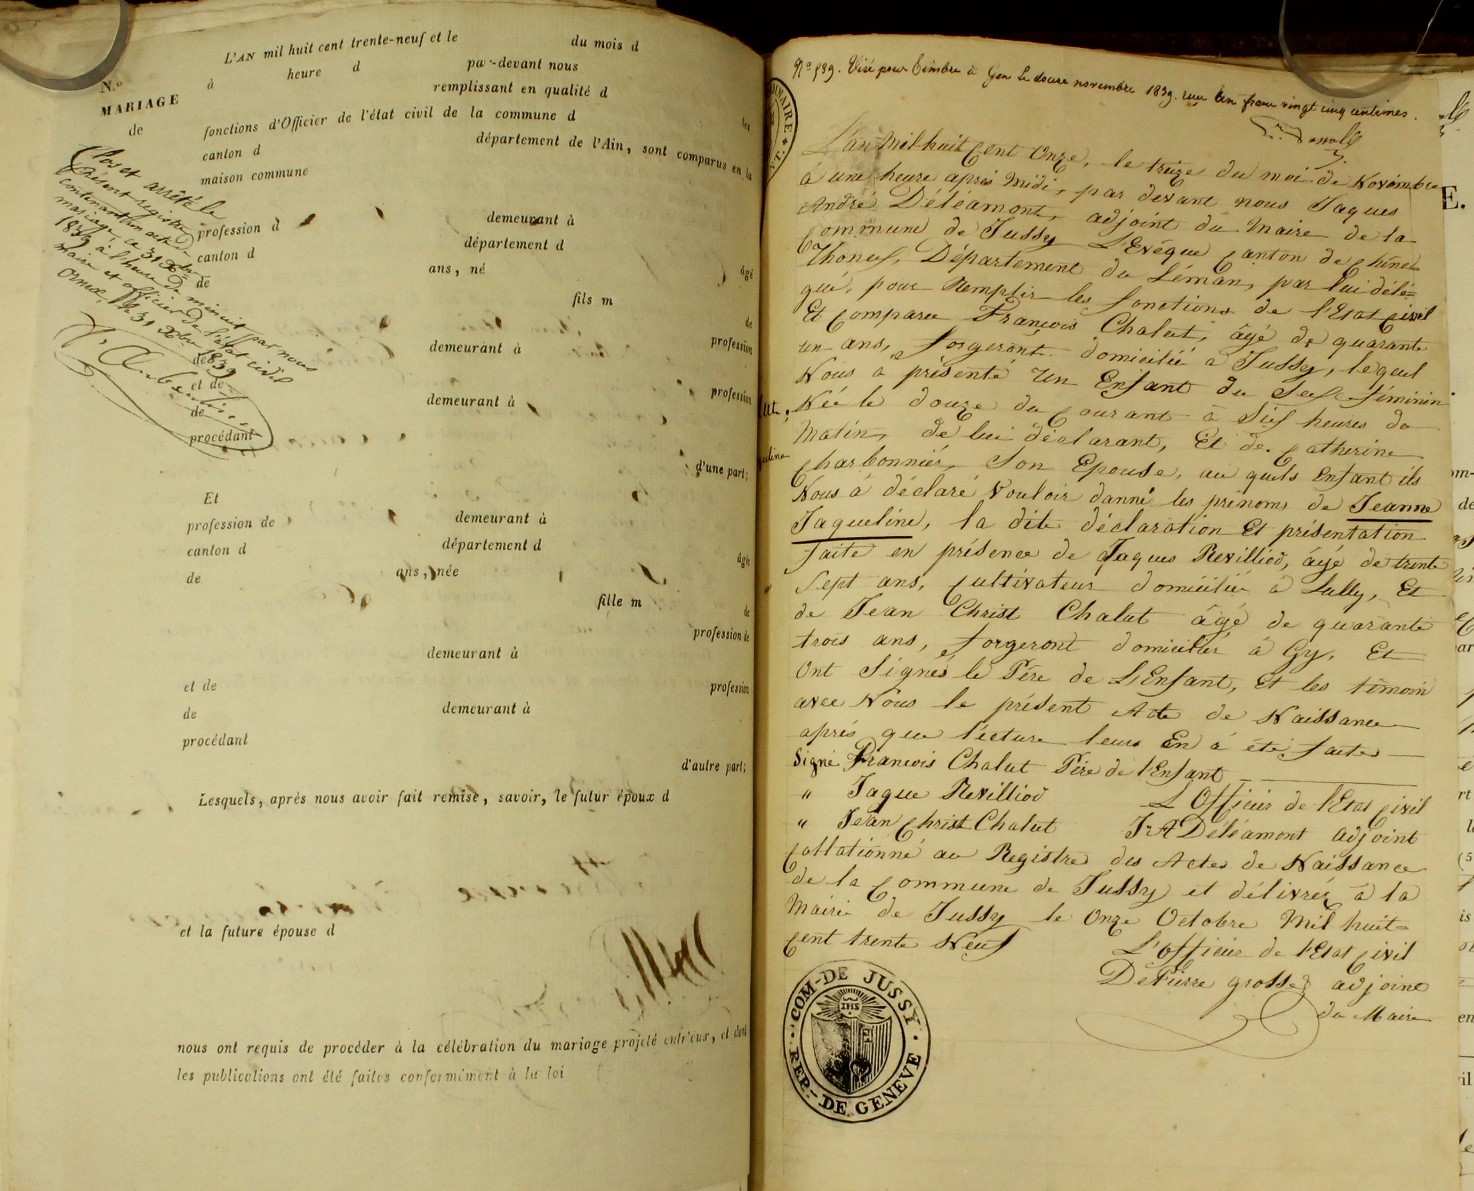 N.o
MARIAGE
de
L'AN mil huit cent trente-neuf et le du mois d
à heure d par-devant nous
remplissant en qualité d
fonctions d'Officier de l'état civil de la commune d les
canton d département de l'Ain, sont comparus en la
maison commune
Clos et arrêté le
présent registre
contenant un acte de
mariage, ce 31 Xbre
1839 à l'heure de minuit par nous
maire et officier de l'état civil
Ornex, le 31 Xbre 1839
profession d demeurant à
canton d département d
de ans, né âgé
fils m
de
de demeurant à profession
et de profession
de demeurant à
procédant
d'une part;
Et
profession de demeurant à
canton d département d
de ans, née âgée
fille m
de
profession de
demeurant à
et de profession
de demeurant à
procédant
d'autre part;
Lesquels, après nous avoir fait remise, savoir, le futur époux d
et la future épouse d
nous ont requis de procéder à la célébration du mariage projeté entr'eux, et dont
les publications ont été faites conformément à la loi
No 539. Visé pour timbre à Gex le douze novembre 1839. reçu un franc vingt cinq centimes.
L'an Mil huit Cent Onze, le treize du moi de Novembre
à une heure après Midi, par devant nous Jaques
André Déléamont, adjoint du Maire de la
Commune de Jussy L'Evéque Canton de Chêne
Thonex, Département du Léman, par lui délé=
gué, pour Remplir les fonctions de l'Etat Civil
Et Comparu François Chalut, âgé de quarante
un ans, forgeront domicilié à Jussy, lequel
Nous a présenté Un Enfant du Sexe féminin
Née le douze du Courant à Six heures du
Matin, de lui déclarant, Et de Catherine
Charbonnier, Son Epouse, au quels Enfant ils
Nous à déclaré Vouloir danné les prénoms de Jeanne
Jaqueline, la dite déclaration Et présentation
faite en présence de Jaques Revilliod, âgé de trente
Sept ans, Cultivateur domicilié à Lully, Et
de Jean Christ Chalut âgé de quarante
trois ans, forgeront domicilié à Gy, Et
Ont Signés le Père de L'Enfant, Et les témoin
avec Nous le présent Acte de Naissance
après que lécture leurs En à été faites
Signé François Chalut Père de l'Enfant
" Jaque Revilliod L'Officier de l'Etat Civil
" Jean Christ Chalut J A Déléamont adjoint
Collationné au Registre des Actes de Naissance
de la Commune de Jussy et délivrée à la
Mairie de Jussy le Onze Octobre Mil huit=
Cent trente Neuf L'officier de l'Etat Civil
DePierre grosset adjoint
du Maire
COM-DE JUSSY
IHS
REP.-DE GENEVE